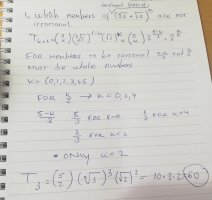 1. Which members of (∛3 + √2)⁵ are not
irrational
T_{k+1} = (5 k) (∛3)^{5-k} (√2)^k = (5 k) 3^{(5-k)/3} · 2^{k/2}
FOR members to be rational and
Must be whole numbers
K = (0,1,2,3,4,5)
FOR k/2 → K = 0,2,4
5-k/3 5/3 FOR K=0 FOR K=4
3/3 FOR K=2
• ONLY K=2
T₃ = (5 2) (∛3)³ (√2)² = 10·3·2 = 60